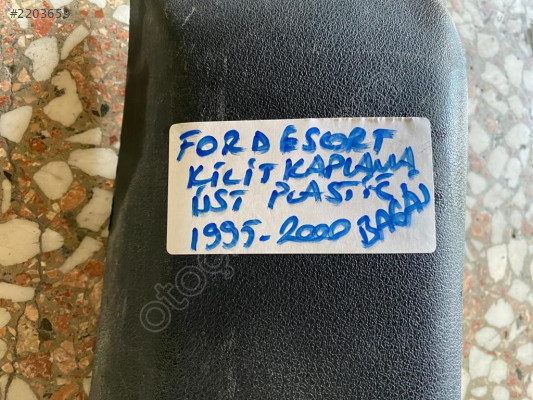 #2203659
FORD ESCORT
KİLİT KAPLAMA
ÜST PLASTİĞ
1995-2000 BAGAJ
otoç